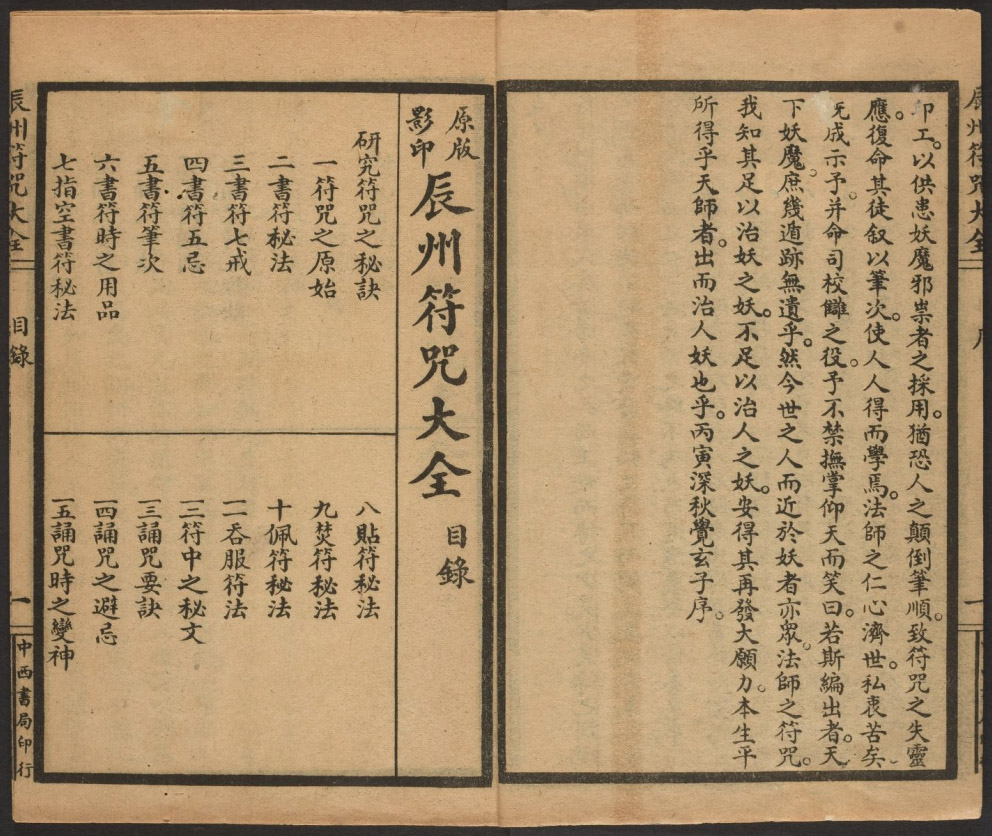 印工。以供患妖魔邪祟者之採用。猶恐人之顛倒筆順。致符咒之失靈
應。復命其徒叙以筆次。使人人得而學焉。法師之仁心濟世。私衷苦矣。
既成示予。并命司校讎之役。予不禁撫掌仰天而笑曰。若斯編出者。天
下妖魔。庶幾遁跡無遺乎。然今世之人而近於妖者亦眾。法師之符咒。
我知其足以治妖之妖。不足以治人之妖。安得其再發大願力。本生平
所得乎天師者。出而治人妖也乎。丙寅深秋覺玄子序。
原版
影印
辰州符咒大全
目錄
研究符咒之秘訣
一符咒之原始
二書符秘法
三書符七戒
四書符五忌
五書符筆次
六書符時之用品
七指空書符秘法
八貼符秘法
九焚符秘法
十佩符秘法
一一吞服符法
一二符中之秘文
一三誦咒要訣
一四誦咒之避忌
一五誦咒時之變神
辰州符咒大全
目錄
一
中西書局印行
辰州符咒大全